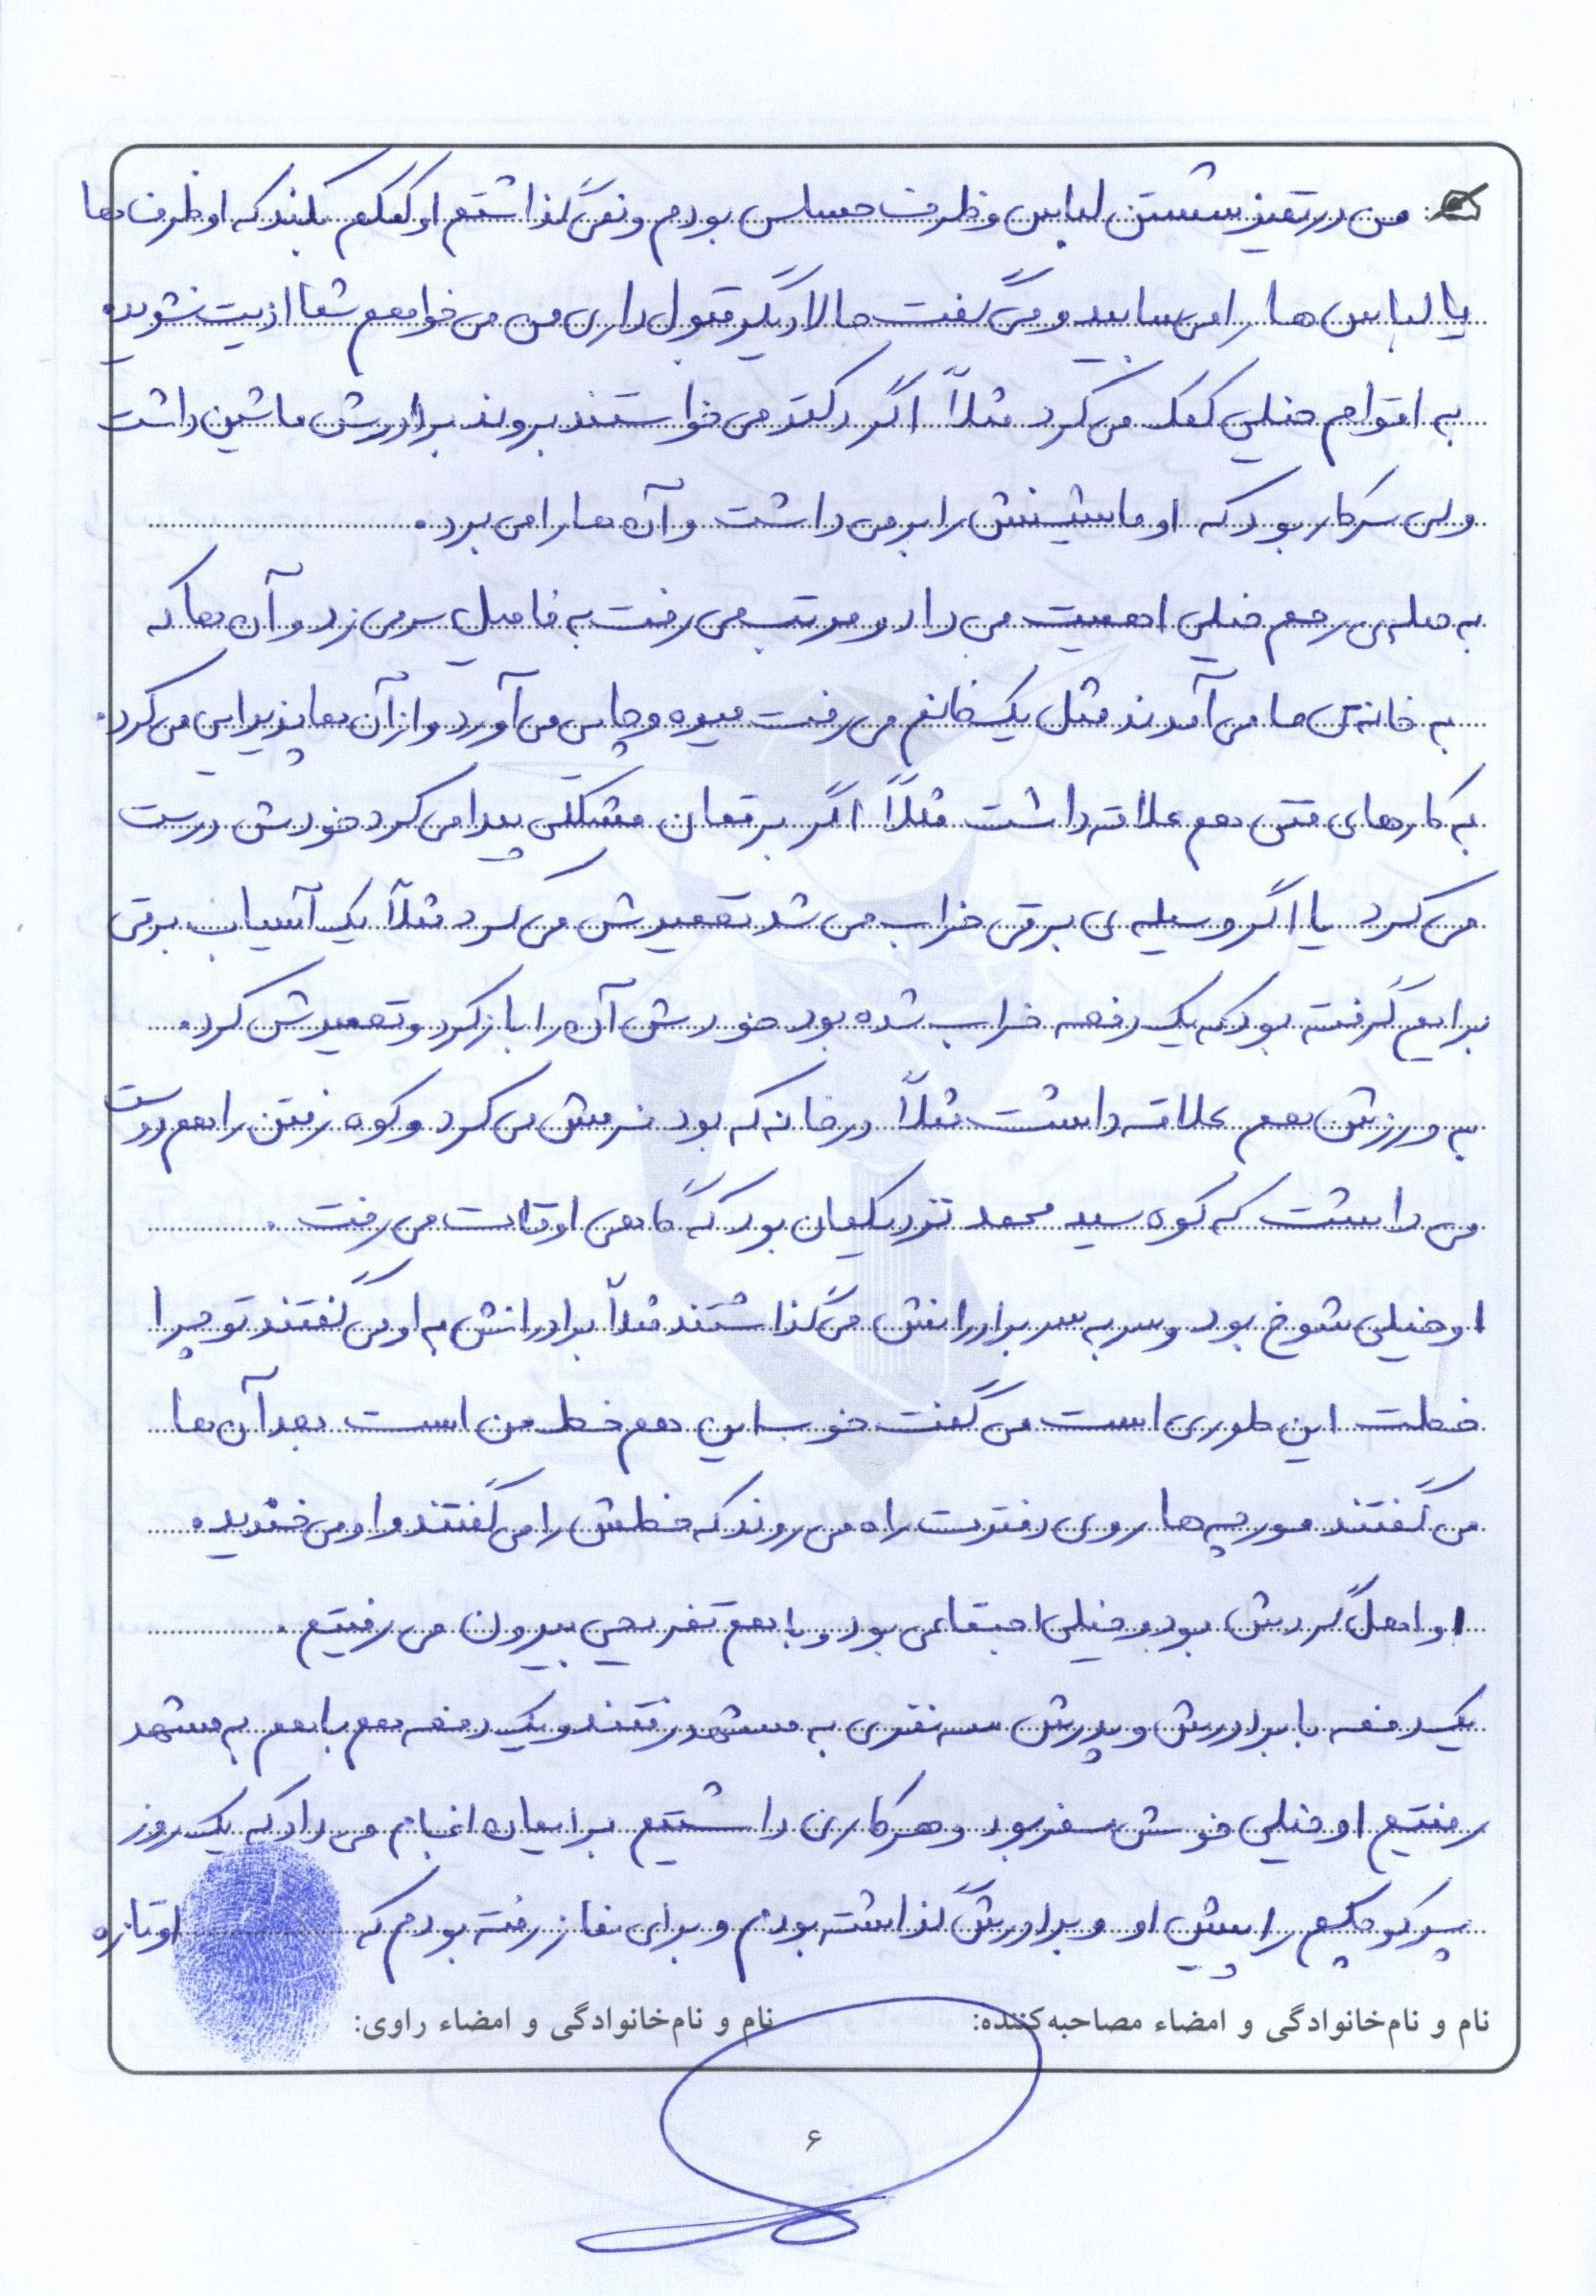 من در تمیز شستن لباس و ظرف حساس بودم و نمی گذاشتم او کمکم بکند که او ظرف ها
یا لباس ها را می سابید و می گفت حالا دیگر قبول داری من می خواهم شما اذیت نشوید.
به اقوام خیلی کمک می کرد مثلاً اگر دکتر می خواستند بروند برادرش ماشین داشت
ولی سرکار بود که او ماشینش را بر می داشت و آن ها را می برد.
به صله ی رحم خیلی اهمیت می داد و مرتب می رفت به فامیل سر می زد و آن ها که
به خانه ی ما می آمدند مثل یک خانم می رفت میوه و چایی می آورد و از آن ها پذیرایی می کرد.
به کارهای فنی هم علاقه داشت مثلاً اگر برقمان مشکلی پیدا می کرد خودش درست
می کرد یا اگر وسیله ی برقی خراب می شد تعمیرش می کرد مثلاً یک آسیاب برقی
برایم گرفته بود که یک دفعه خراب شده بود خودش آن را باز کرد و تعمیرش کرد.
به ورزش هم علاقه داشت مثلاً در خانه که بود نرمش می کرد و کوه رفتن را هم دوست
می داشت که کوه سید محمد نزدیکمان بود که گاهی اوقات می رفت.
او خیلی شوخ بود و سر به سر برادرانش می گذاشتند مثلاً برادرانش به او می گفتند تو چرا
خطت این طوری است می گفت خوب این هم خط من است بعد آن ها
می گفتند مورچه ها روی دفترت راه می روند که خطش را می گفتند و او می خندید.
او اهل گردش بود و خیلی اجتماعی بود و با هم تفریحی بیرون می رفتیم.
یک دفعه با برادرش و پدرش سه نفری به مشهد رفتند و یک دفعه هم با هم به مشهد
رفتیم او خیلی خوش سفر بود و هر کاری داشتیم برایمان انجام می داد که یک روز
پسر کوچکم را پیش او و برادرش گذاشته بودم و برای نماز رفته بودم که او تازه
نام و نام‌خانوادگی و امضاء مصاحبه‌کننده: نام و نام‌خانوادگی و امضاء راوی:
۶